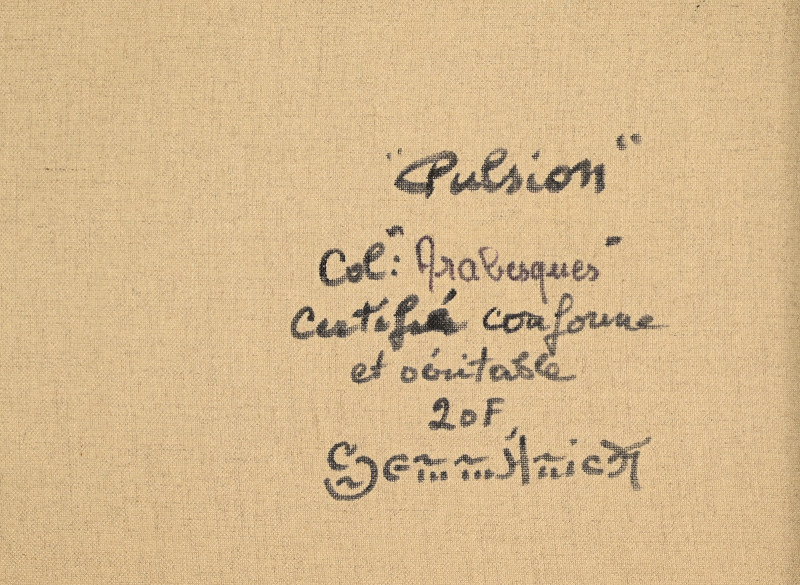 "Pulsion"
Col: "Arabesques"
Certifié conforme
et véritable
20F